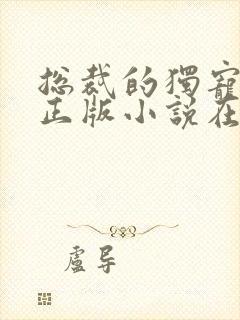 总裁的獨寵
正版小說在
盧导